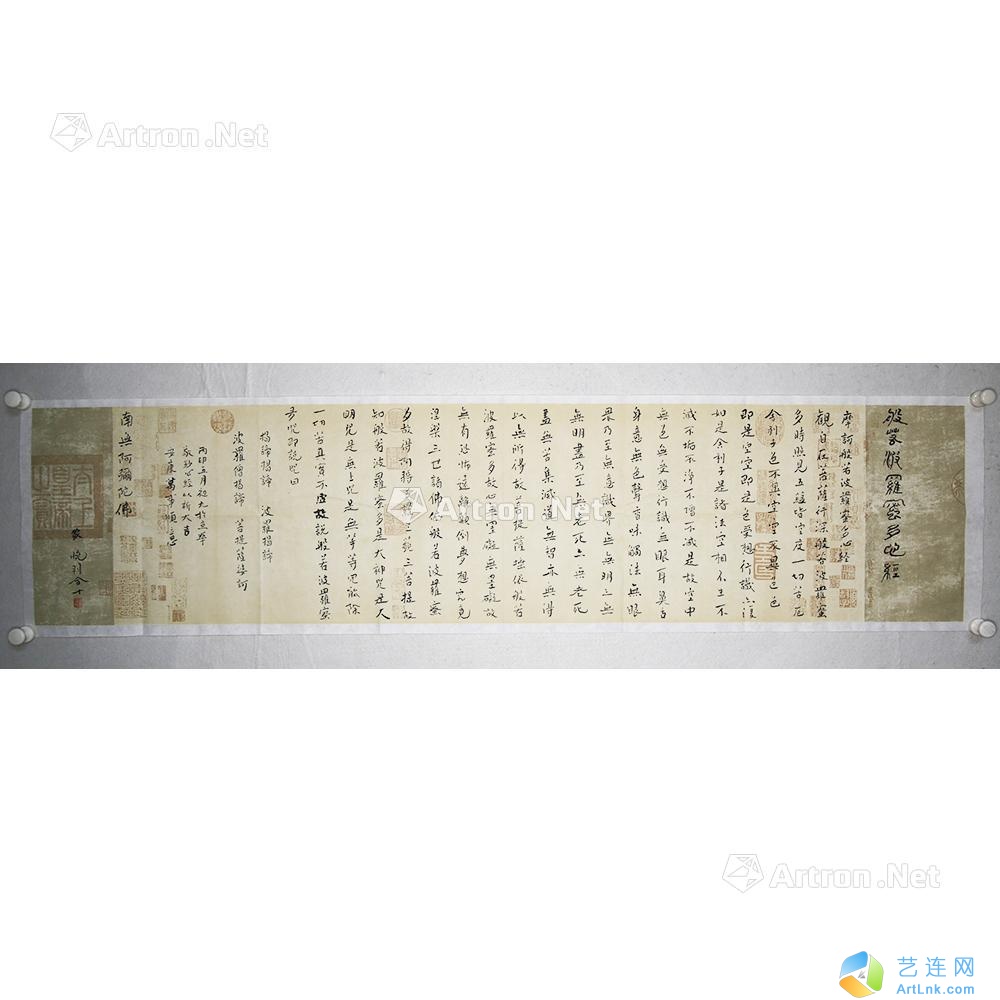 般若波羅蜜多心經
摩訶般若波羅蜜多心經
觀自在菩薩行深般若波羅蜜
多時照見五蘊皆空度一切苦厄
舍利子色不異空空不異色色
即是空空即是色受想行識亦復
如是舍利子是諸法空相不生不
滅不垢不淨不增不減是故空中
無色無受想行識無眼耳鼻舌
身意無色聲香味觸法無眼
界乃至無意識界無無明亦無
無明盡乃至無老死亦無老死
盡無苦集滅道無智亦無得
以無所得故菩提薩埵依般若
波羅蜜多故心無罣礙無罣礙故
無有恐怖遠離顛倒夢想究竟
涅槃三世諸佛依般若波羅蜜
多故得阿耨多羅三藐三菩提故
知般若波羅蜜多是大神咒是大
明咒是無上咒是無等等咒能除
一切苦真實不虛故說般若波羅蜜
多咒即說咒曰
揭諦揭諦 波羅揭諦
波羅僧揭諦 菩提薩婆訶
五月初九於京華
敬抄心經以祈大吉
安康萬事順意
南無阿彌陀佛
合十
Artron.Net
Artron.Net
Artron.Net
Artron.Net
Artron.Net
Artron.Net
艺连网
ArtLnk.com